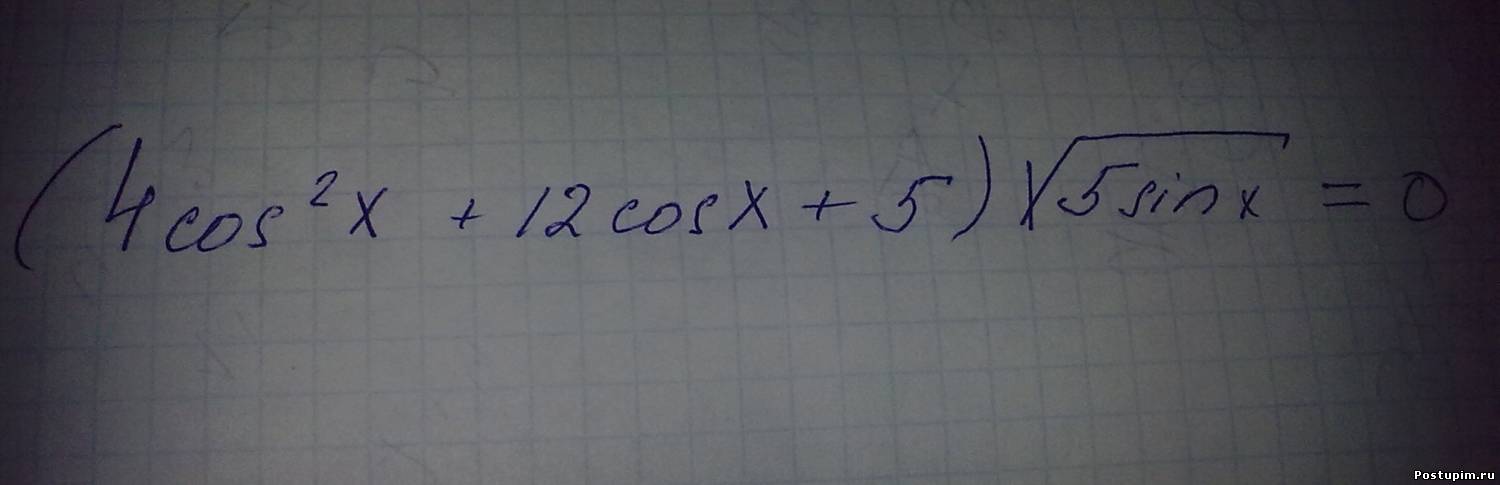 (4cos²x + 12cosx + 5)√5sinx = 0
Postupim.ru